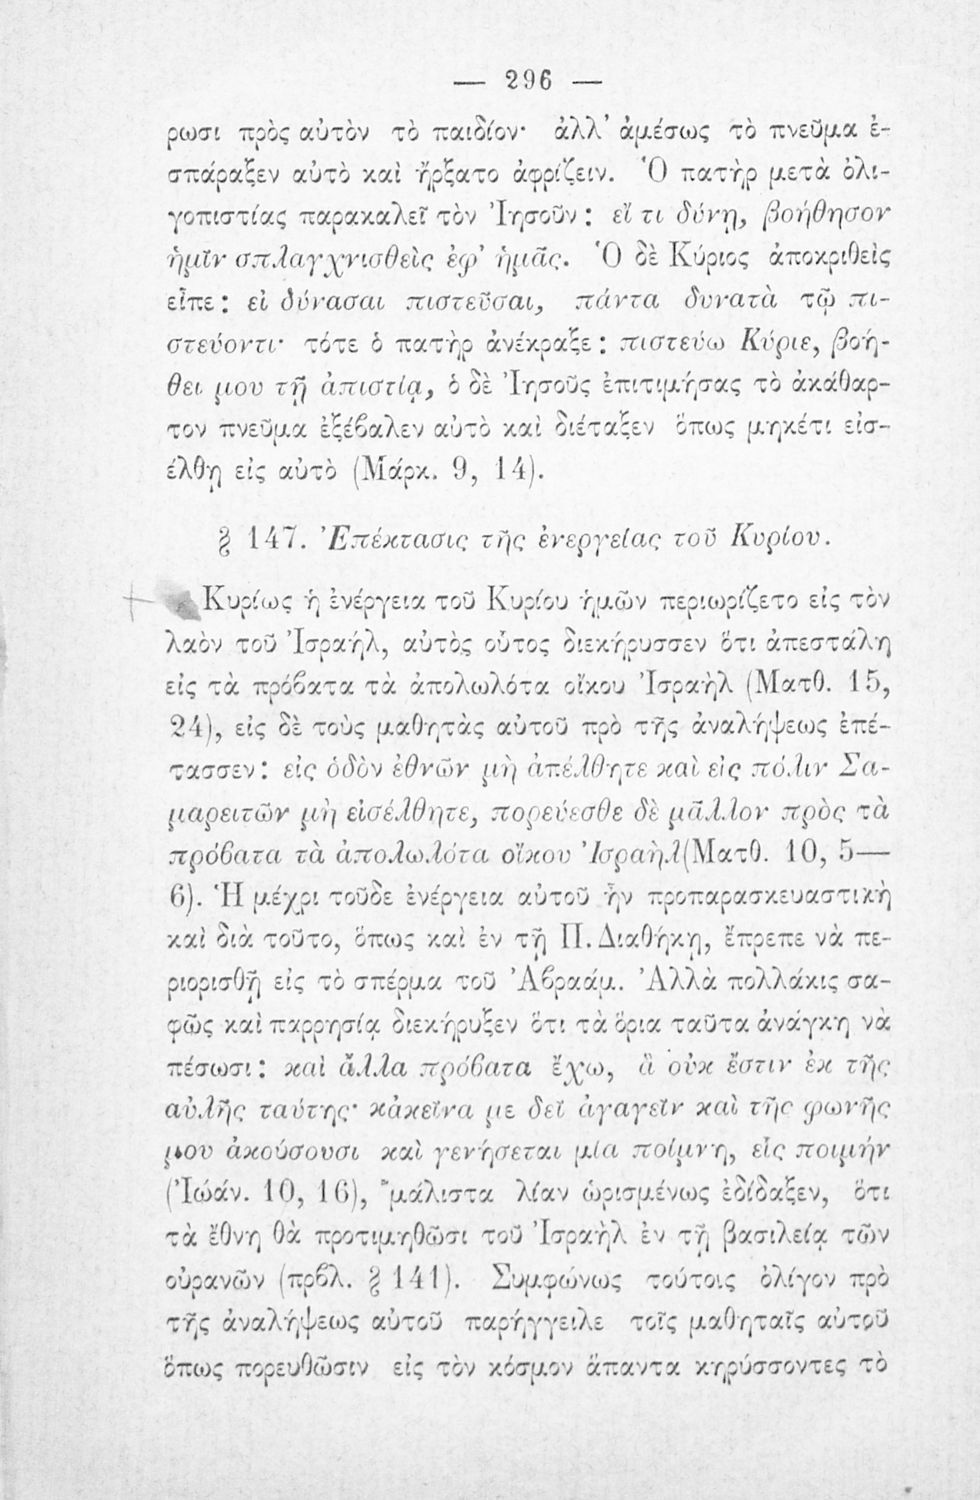 — 296 —
ρωσι πρὸς αὐτὸν τὸ παιδίον· ἀλλ’ ἀμέσως τὸ πνεῦμα ἐ-
σπάραξεν αὐτὸ καὶ ἤρξατο ἀφρίζειν. Ὁ πατὴρ μετὰ ὀλι-
γοπιστίας παρακαλεῖ τὸν Ἰησοῦν : εἴ τι δύνῃ, βοήθησον
ἡμῖν σπλαγχνισθεὶς ἐφ’ ἡμᾶς. Ὁ δὲ Κύριος ἀποκριθεὶς
εἶπε : εἰ δύνασαι πιστεῦσαι, πάντα δυνατὰ τῷ πι-
στεύοντι· τότε ὁ πατὴρ ἀνέκραξε : πιστεύω Κύριε, βοή-
θει μου τῇ ἀπιστίᾳ, ὁ δὲ Ἰησοῦς ἐπιτιμήσας τὸ ἀκάθαρ-
τον πνεῦμα ἐξέβαλεν αὐτὸ καὶ διέταξεν ὅπως μηκέτι εἰσ-
έλθῃ εἰς αὐτὸ (Μάρκ. 9, 14).
§ 147. Ἐπέκτασις τῆς ἐνεργείας τοῦ Κυρίου.
Κυρίως ἡ ἐνέργεια τοῦ Κυρίου ἡμῶν περιωρίζετο εἰς τὸν
λαὸν τοῦ Ἰσραήλ, αὐτὸς οὗτος διεκήρυσσεν ὅτι ἀπεστάλη
εἰς τὰ πρόβατα τὰ ἀπολωλότα οἴκου Ἰσραὴλ (Ματθ. 15,
24), εἰς δὲ τοὺς μαθητὰς αὐτοῦ πρὸ τῆς ἀναλήψεως ἐπέ-
τασσεν : εἰς ὁδὸν ἐθνῶν μὴ ἀπέλθητε καὶ εἰς πόλιν Σα-
μαρειτῶν μὴ εἰσέλθητε, πορεύεσθε δὲ μᾶλλον πρὸς τὰ
πρόβατα τὰ ἀπολωλότα οἴκου Ἰσραὴλ(Ματθ. 10, 5—
6). Ἡ μέχρι τοῦδε ἐνέργεια αὐτοῦ ἦν προπαρασκευαστικὴ
καὶ διὰ τοῦτο, ὅπως καὶ ἐν τῇ Π. Διαθήκῃ, ἔπρεπε νὰ πε-
ριορισθῇ εἰς τὸ σπέρμα τοῦ Ἀβραάμ. Ἀλλὰ πολλάκις σα-
φῶς καὶ παρρησίᾳ διεκήρυξεν ὅτι τὰ ὅρια ταῦτα ἀνάγκη νὰ
πέσωσι : καὶ ἄλλα πρόβατα ἔχω, ἃ οὐκ ἔστιν ἐκ τῆς
αὐλῆς ταύτης· κἀκεῖνα με δεῖ ἀγαγεῖν καὶ τῆς φωνῆς
μου ἀκούσουσι καὶ γενήσεται μία ποίμνη, εἷς ποιμήν
(Ἰωάν. 10, 16), μάλιστα λίαν ὡρισμένως ἐδίδαξεν, ὅτι
τὰ ἔθνη θὰ προτιμηθῶσι τοῦ Ἰσραὴλ ἐν τῇ βασιλείᾳ τῶν
οὐρανῶν (πρβλ. § 141). Συμφώνως τούτοις ὀλίγον πρὸ
τῆς ἀναλήψεως αὐτοῦ παρήγγειλε τοῖς μαθηταῖς αὐτοῦ
ὅπως πορευθῶσιν εἰς τὸν κόσμον ἅπαντα κηρύσσοντες τὸ